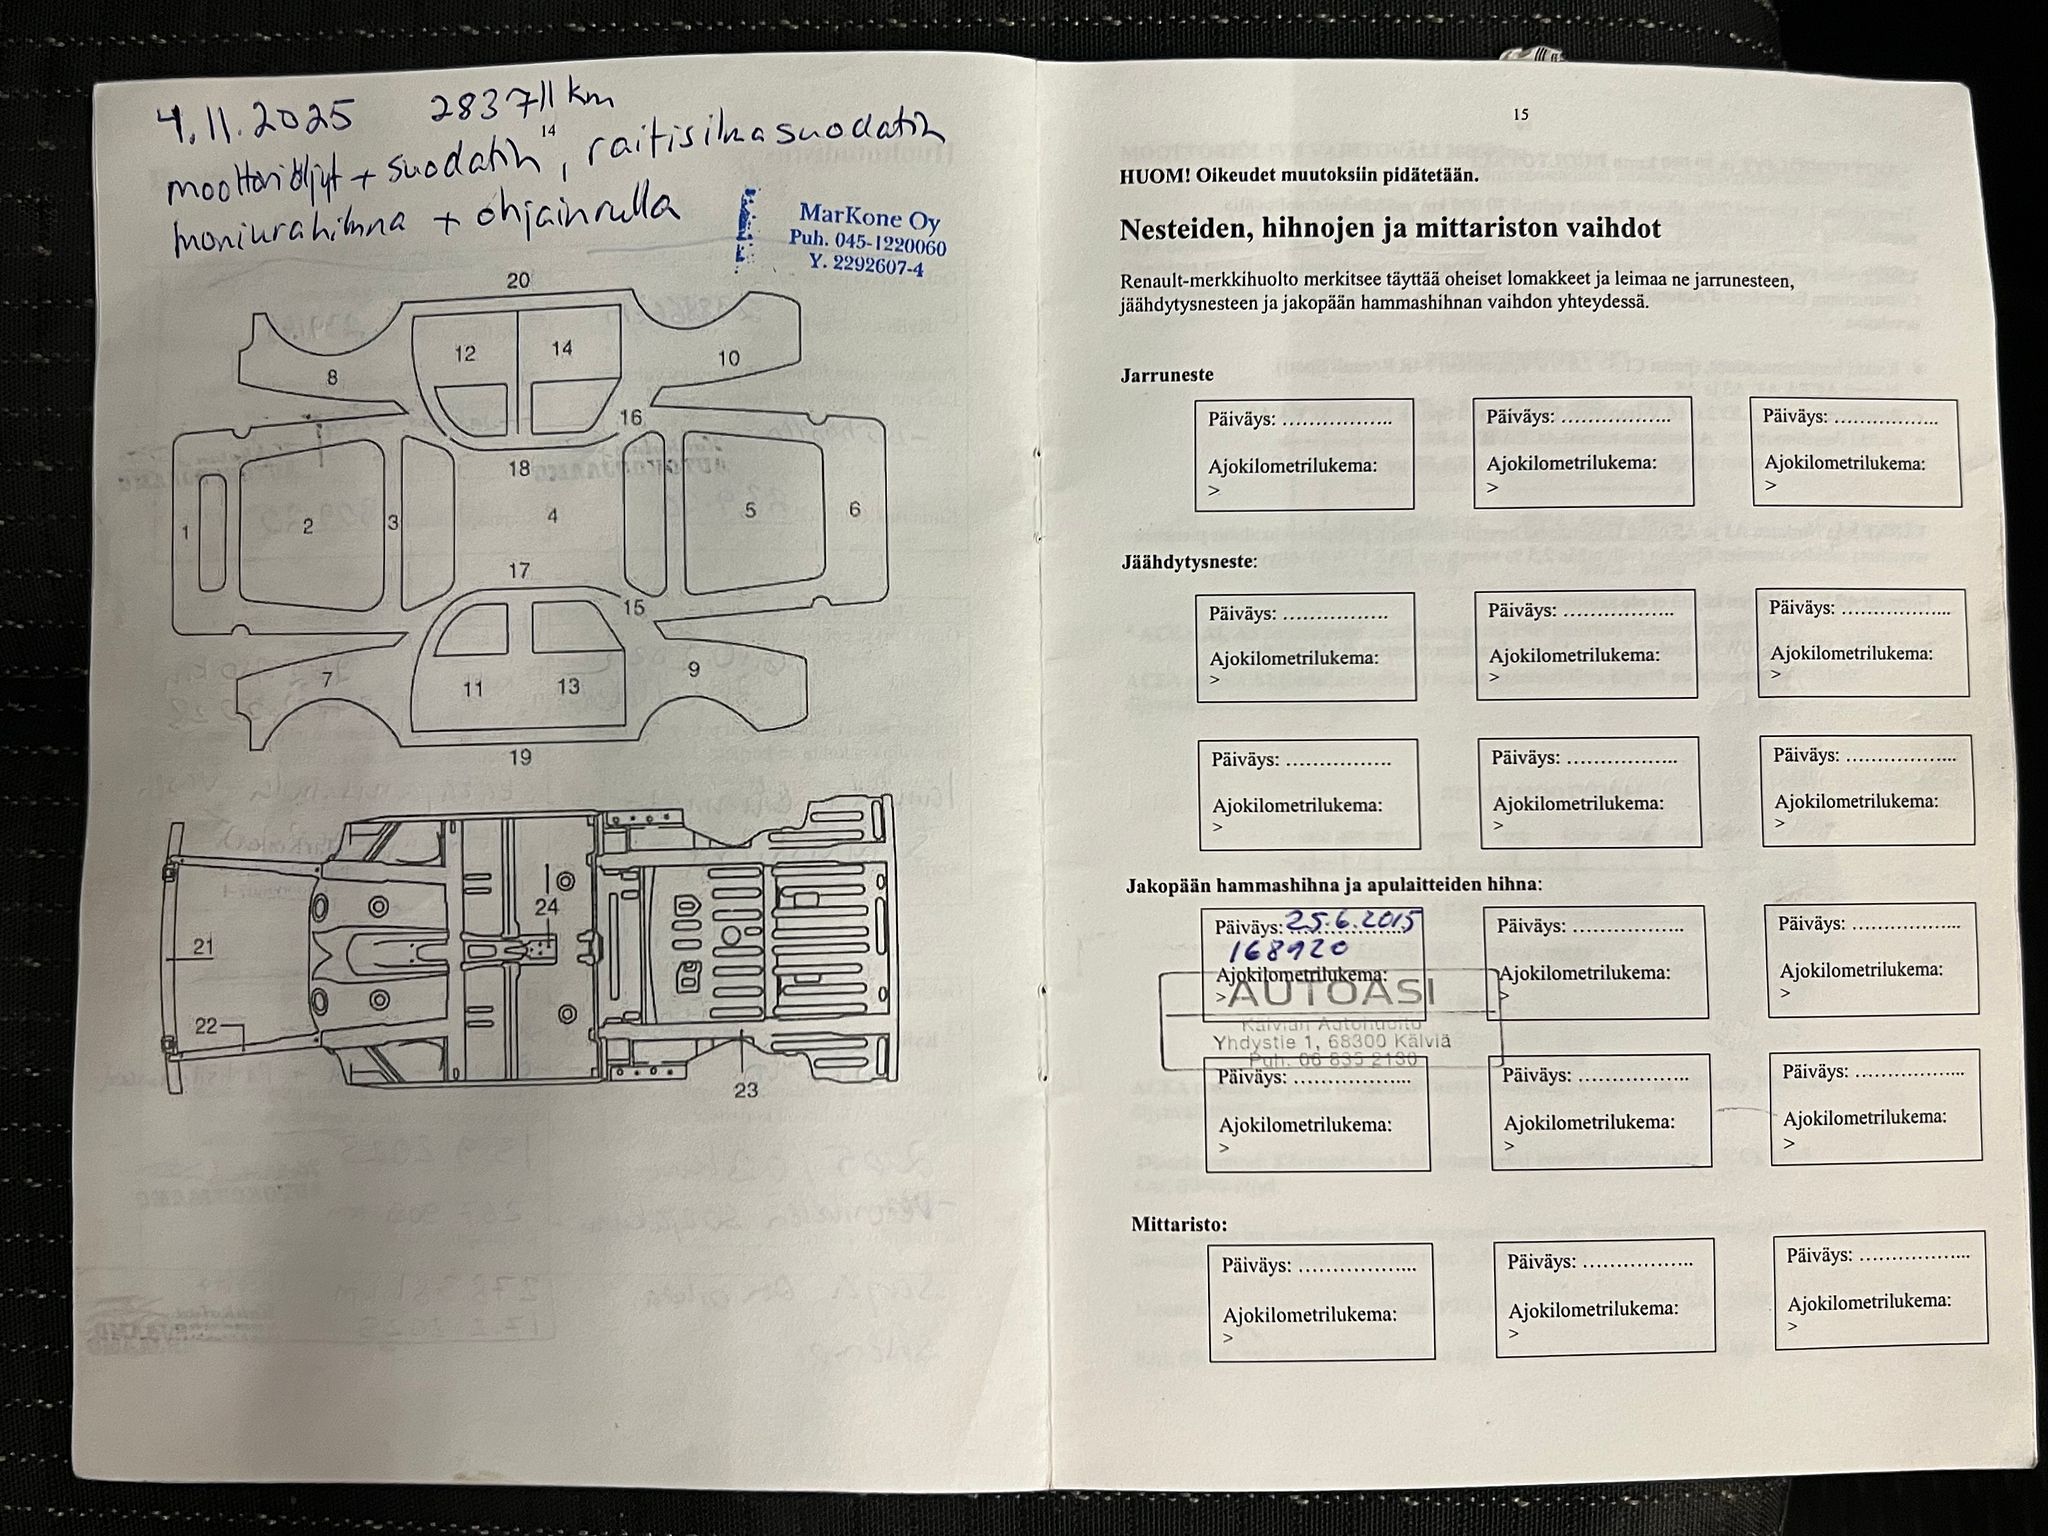 4.11.2025 283711 km
14
moottoriöljyt + suodatin, raitisilmasuodatin
moniurahihna + ohjainrulla
MarKone Oy
Puh. 045-1220060
Y. 2292607-4
20
12 14
8 10
16
18
1 2 3 4 5 6
17
15
7 11 13 9
19
24
21
22
23
15
HUOM! Oikeudet muutoksiin pidätetään.
Nesteiden, hihnojen ja mittariston vaihdot
Renault-merkkihuolto merkitsee täyttää oheiset lomakkeet ja leimaa ne jarrunesteen,
jäähdytysnesteen ja jakopään hammashihnan vaihdon yhteydessä.
Jarruneste
Päiväys: .................. Päiväys: .................. Päiväys: ..................
Ajokilometrilukema: Ajokilometrilukema: Ajokilometrilukema:
> > >
Jäähdytysneste:
Päiväys: .................. Päiväys: .................. Päiväys: ..................
Ajokilometrilukema: Ajokilometrilukema: Ajokilometrilukema:
> > >
Päiväys: .................. Päiväys: .................. Päiväys: ..................
Ajokilometrilukema: Ajokilometrilukema: Ajokilometrilukema:
> > >
Jakopään hammashihna ja apulaitteiden hihna:
Päiväys: 25.6.2015 Päiväys: .................. Päiväys: ..................
168920
Ajokilometrilukema: Ajokilometrilukema: Ajokilometrilukema:
> > >
AUTOASI
Kälviän Autohuolto
Yhdystie 1, 68300 Kälviä
Puh. 06 835 2130
Päiväys: .................. Päiväys: .................. Päiväys: ..................
Ajokilometrilukema: Ajokilometrilukema: Ajokilometrilukema:
> > >
Mittaristo:
Päiväys: .................. Päiväys: .................. Päiväys: ..................
Ajokilometrilukema: Ajokilometrilukema: Ajokilometrilukema:
> > >